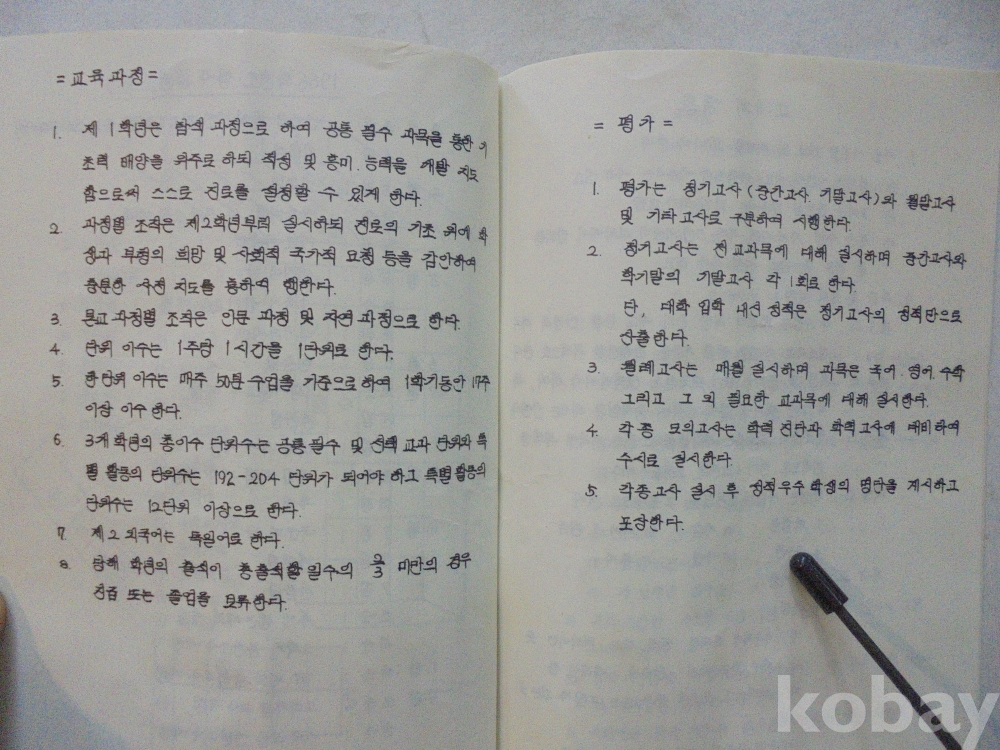 = 교육과정 =
1. 제 1학년은 탐색 과정으로 하여 공통 필수 과목을 통한 기
초력 배양을 위주로 하되 적성 및 흥미. 능력을 개발 지도
함으로써 스스로 진로를 결정할 수 있게 한다.
2. 과정별 조직은 제2학년부터 실시하되 진로의 기초 위에 학
생과 부형의 희망 및 사회적 국가적 요청 등을 감안하여
충분한 사전 지도를 통하여 행한다.
3. 본교 과정별 조직은 인문 과정 및 자연 과정으로 한다.
4. 단위 이수는 1주당 1시간을 1단위로 한다.
5. 한단위 이수는 매주 50분 수업을 기준으로 하여 1학기동안 17주
이상 이수 한다.
6. 3개 학년의 총이수 단위수는 공통 필수 및 선택 교과 단위와 특
별 활동의 단위수는 192-204 단위가 되어야 하고 특별활동의
단위수는 12단위 이상으로 한다.
7. 제2 외국어는 독일어로 한다.
8. 당해 학년의 출석이 총출석할 일수의 2/3 미만의 경우
진급 또는 졸업을 보류한다.
= 평가 =
1. 평가는 정기고사 (중간고사. 기말고사)와 월말고사
및 기타 고사로 구분하여 시행한다.
2. 정기고사는 전 교과목에 대해 실시하며 중간고사와
학기말의 기말고사 각 1회로 한다.
단, 대학 입학 내신 성적은 정기고사의 성적만으로
산출한다.
3. 월례고사는 매월 실시하며 과목은 국어. 영어. 수학
그리고 그 외 필요한 교과목에 대해 실시한다.
4. 각종 모의고사는 학력 진단과 학력고사에 대비하여
수시로 실시한다.
5. 각종고사 실시 후 성적우수 학생의 명단을 게시하고
포상한다.
kobay